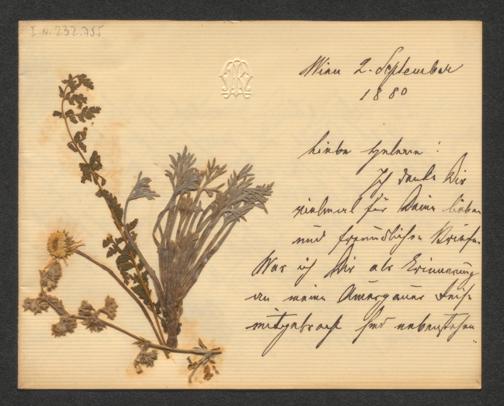 I.N. 232.755
Wien 2. September
1880
Liebe Helene!
Ich danke Dir
vielmal für Deine lieben
und freundlichen Briefe.
Was ich Dir als Erinnerung
an meine Ammergauer Reise
mitgebracht sind nebenstehen